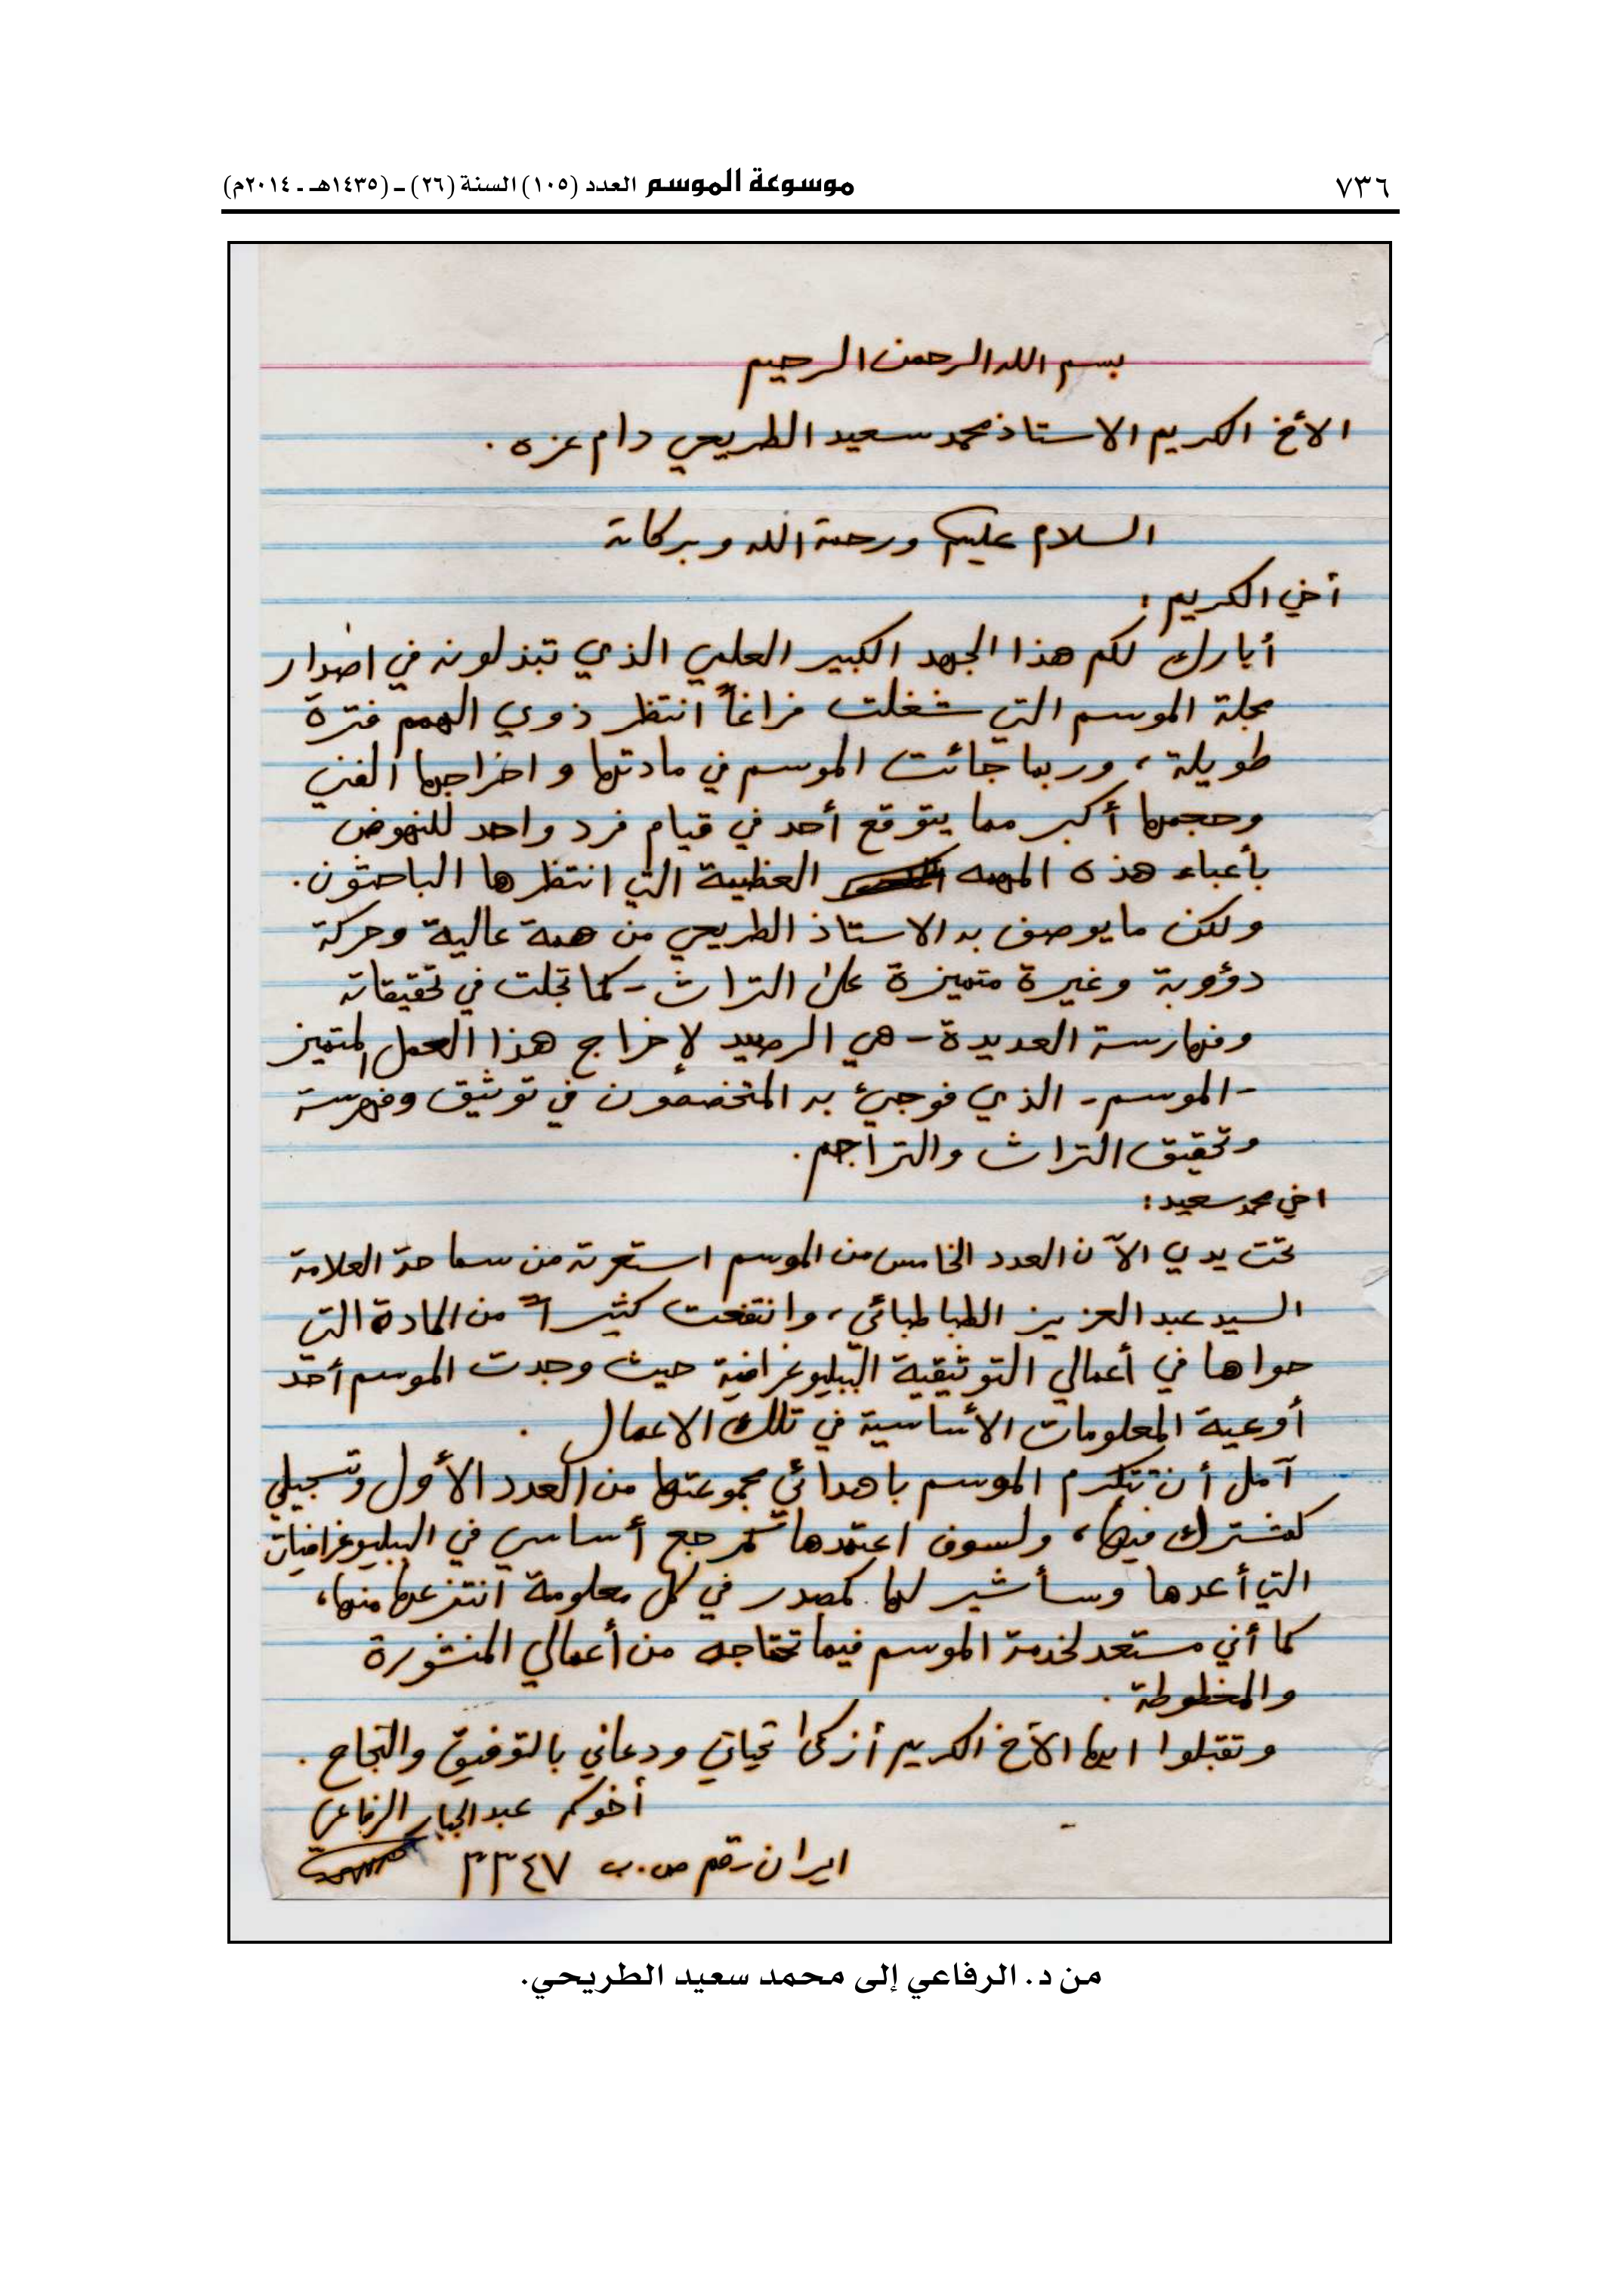 ٧٣٦
موسوعة الموسم العدد (١٠٥) السنة (٢٦) ـ (١٤٣٥هـ ـ ٢٠١٤م)
بسم الله الرحمن الرحيم
الأخ الكريم الاستاذ محمد سعيد الطريحي دام عزه .
السلام عليكم ورحمة الله وبركاته
أخي الكريم :
أبارك لكم هذا الجهد الكبير العلمي الذي تبذلونه في اصدار
مجلة الموسم التي شغلت فراغاً انتظر ذوي الهمم فترة
طويلة ، وربما جائت الموسم في مادتها واخراجها الفني
وحجمها أكبر مما يتوقع أحد في قيام فرد واحد للنهوض
بأعباء هذه المهمة العظيمة التي انتظرها الباحثون .
ولكن ما يوصف به الاستاذ الطريحي من همة عالية وحركة
دؤوبة وغيرة متميزة على التراث - كما تجلت في تحقيقاته
وفهارسة العديدة - هي الرصيد لإخراج هذا العمل المتميز
- الموسم - الذي فوجئ به المتخصصون في توثيق وفهرسة
وتحقيق التراث والتراجم .
اخي محمد سعيد :
تحت يدي الآن العدد الخامس من الموسم استعرته من سماحة العلامة
السيد عبد العزيز الطباطبائي ، وانتفعت كثيراً من المادة التي
حواها في أعمالي التوثيقية الببليوغرافية حيث وجدت الموسم أحد
أوعية المعلومات الأساسية في تلك الاعمال .
آمل أن تتكرم الموسم باهدائي مجموعتها من العدد الأول وتسجيلي
كمشترك فيها ، ولسوف اعتمدها كمرجع أساسي في الببليوغرافيات
التي أعدها وسأشير لها كمصدر في كل معلومة انتزعها منها ،
كما أني مستعد لخدمة الموسم فيما تحتاجه من أعمالي المنشورة
والمخطوطة .
وتقبلوا ايها الأخ الكريم أزكى تحياتي ودعائي بالتوفيق والنجاح .
أخوكم عبد الجبار الرفاعي
ايران - قم ص . ب ٣٣٤٧
من د. الرفاعي إلى محمد سعيد الطريحي.